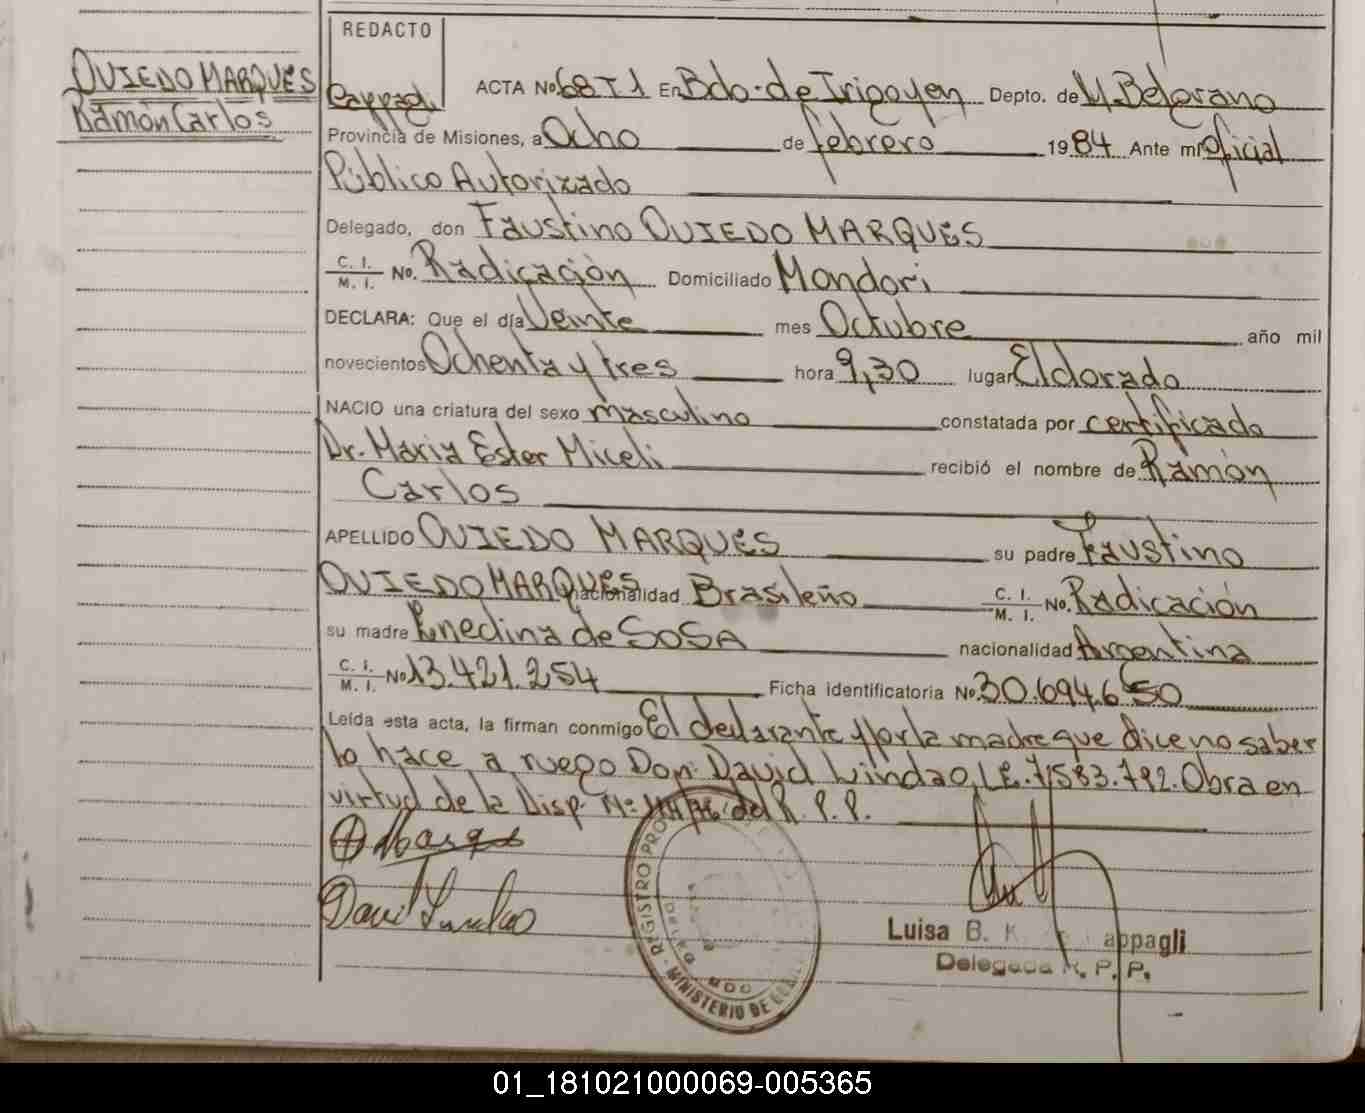 REDACTO
OVIEDO MARQUES
Ramón Carlos
ACTA No. 68 T1 En Bdo. de Irigoyen Depto. de M. Belgrano
Provincia de Misiones, a Ocho de febrero 1984 Ante mi Oficial
Público Autorizado
Delegado, don Faustino OVIEDO MARQUES
C. I. / M. I. No. Radicación Domiciliado Mondori
DECLARA: Que el día Veinte mes Octubre año mil
novecientos Ochenta y tres hora 9,30 lugar Eldorado
NACIO una criatura del sexo masculino constatada por certificado
Dr. Maria Ester Miceli recibió el nombre de Ramón
Carlos
APELLIDO OVIEDO MARQUES su padre Faustino
OVIEDO MARQUES nacionalidad Brasileño C. I. / M. I. No. Radicación
su madre Enedina de SOSA nacionalidad Argentina
C. I. / M. I. No 13.421.254 Ficha identificatoria No. 30.694.650
Leída esta acta, la firman conmigo El declarante y por la madre que dice no saber
lo hace a ruego Don. David Lindao, L.E. 7.583.792. Obra en
virtud de la Disp. Nº 114/76 del R. P. P.
David Lindao
REGISTRO PRO
MINISTERIO DE
Luisa B. K. appagli
Delegada R. P. P.
01_181021000069-005365